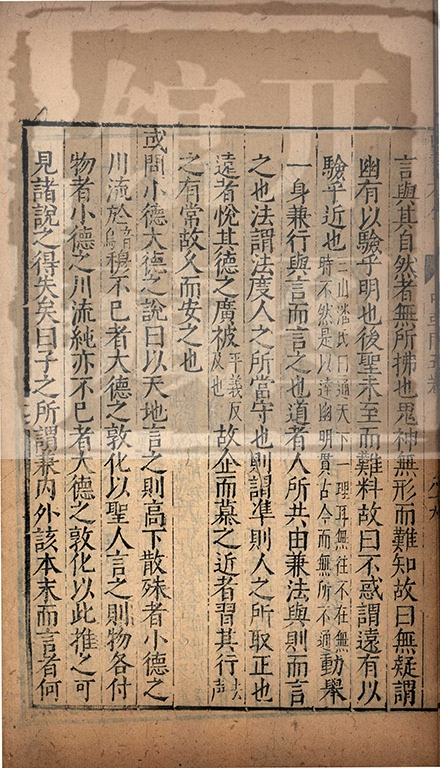 言與其自然者無所拂也鬼神無形而難知故曰無疑謂
幽有以驗乎明也後聖未至而難料故曰不惑謂遠有以
驗乎近也三山潘氏曰通天下一理耳無往不在無時不然是以達幽明貫古今而無所不通動舉
一身兼行與言而言之也道者人所共由兼法與則而言
之也法謂法度人之所當守也則謂準則人之所取正也
遠者悅其德之廣被平義反及也故企而慕之近者習其行去聲
之有常故久而安之也
或問小德大德之說曰以天地言之則高下散殊者小德之
川流於音烏穆不已者大德之敦化以聖人言之則物各付
物者小德之川流純亦不已者大德之敦化以此推之可
見諸說之得失矣曰子之所謂兼內外該本末而言者何